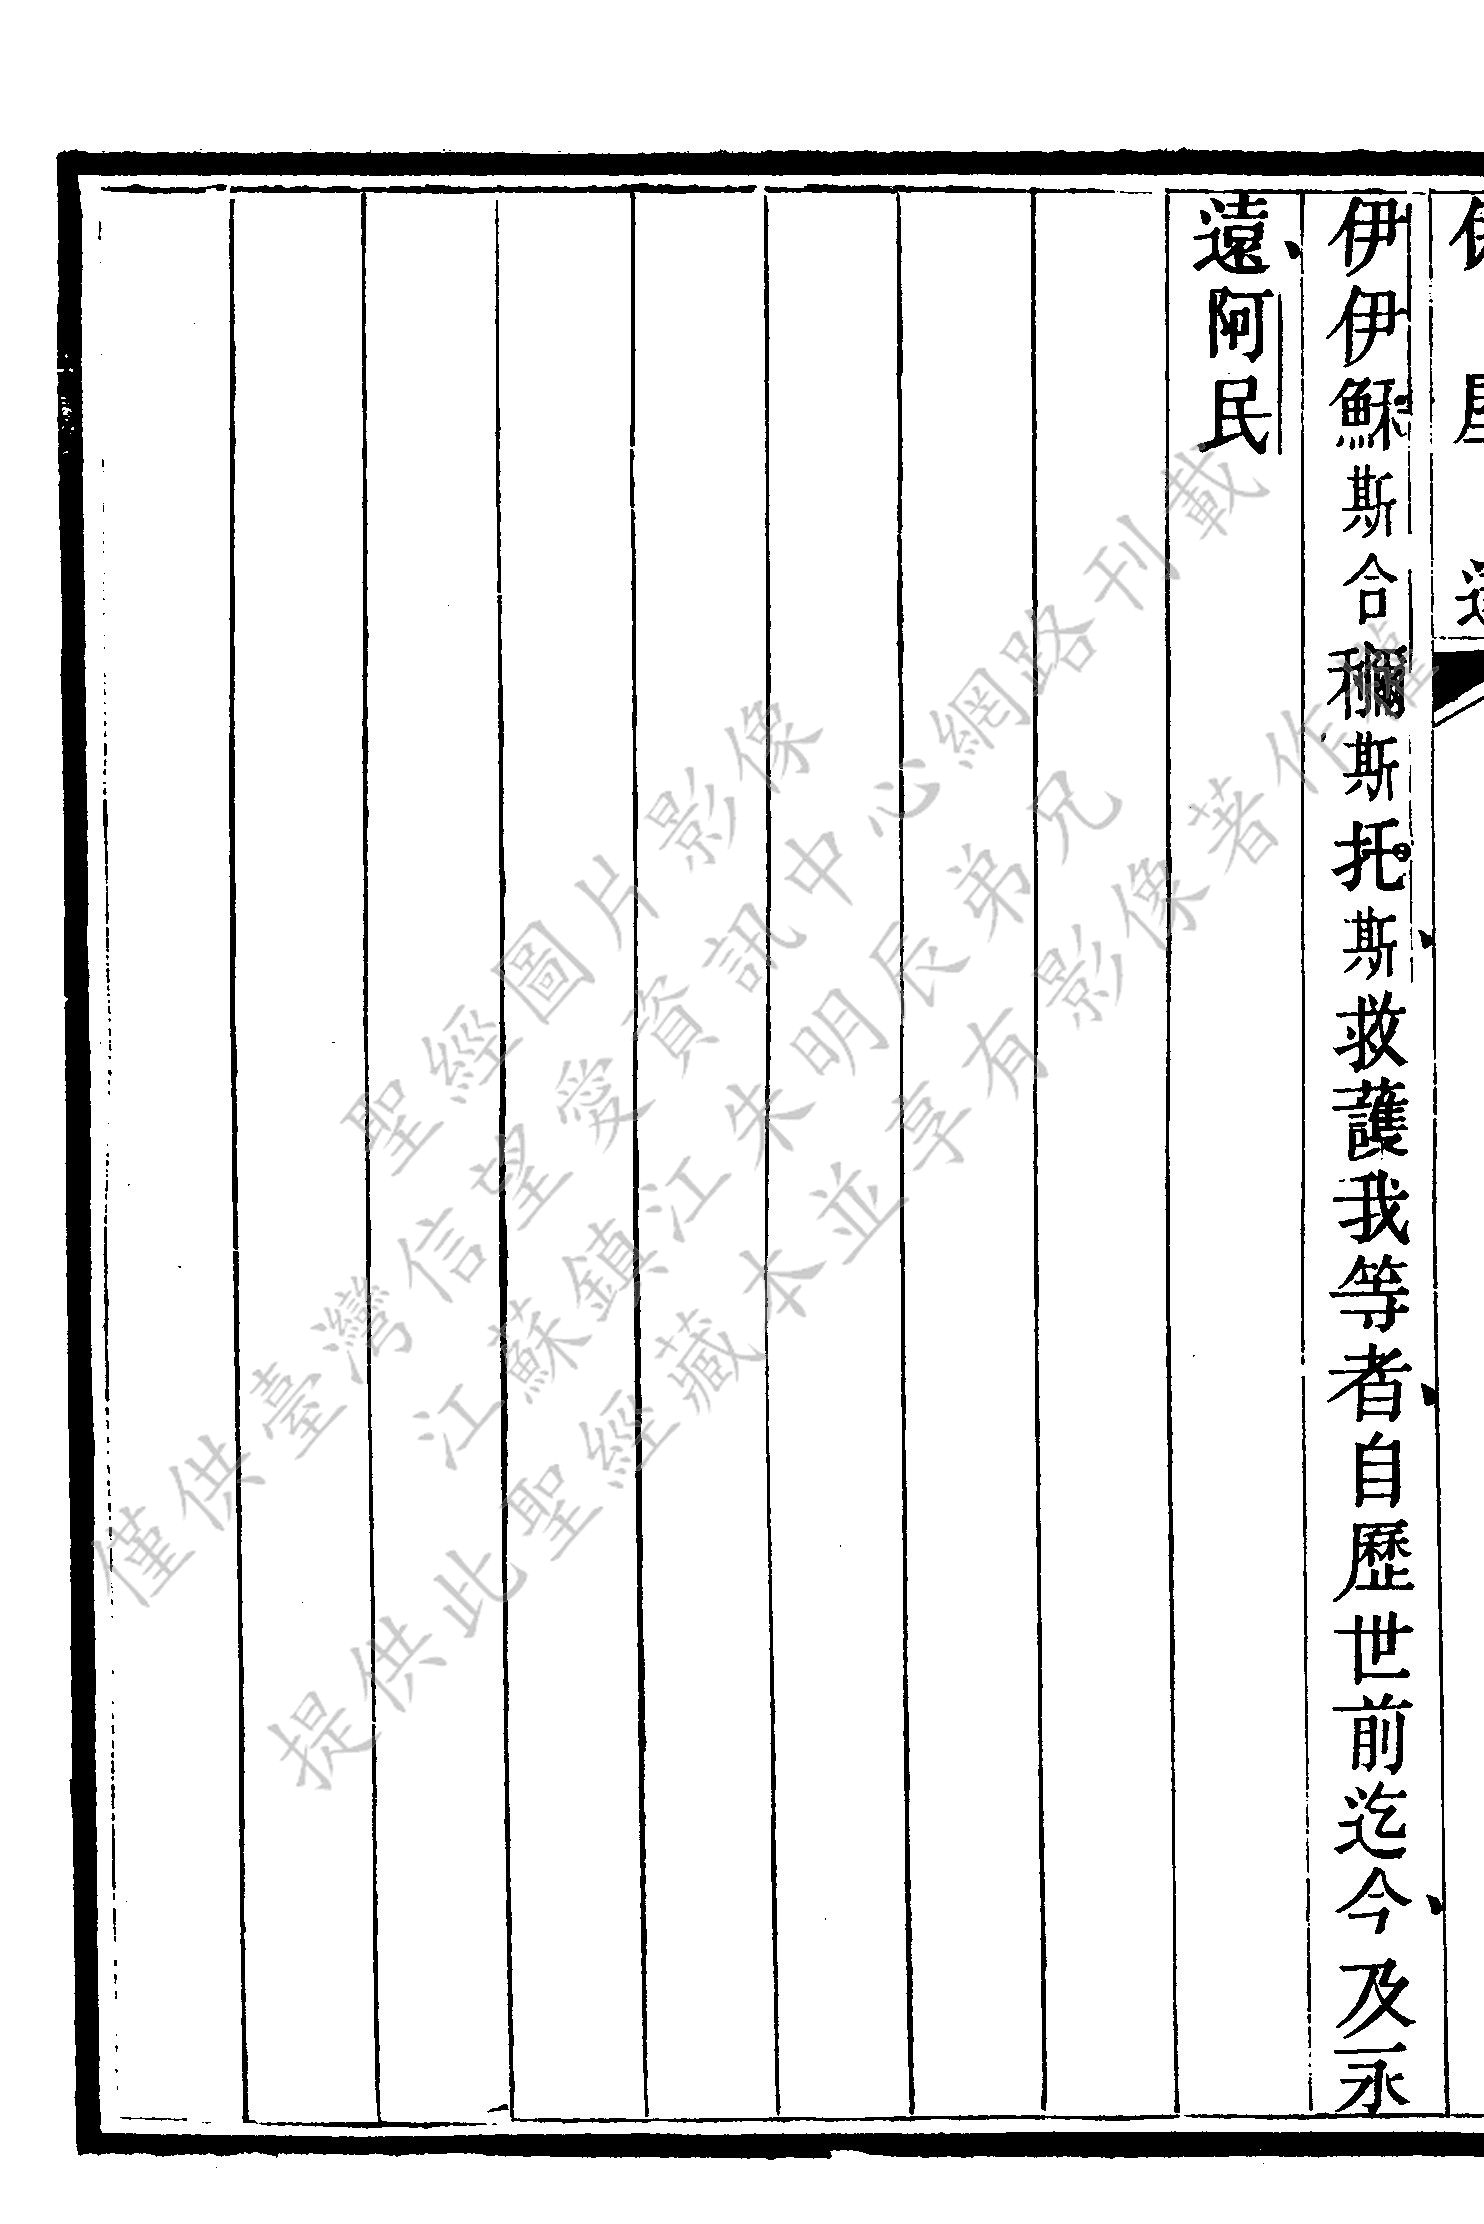 伊伊穌斯合穪斯托斯、救護我等者、自歷世前迄今、及永
遠、阿民
聖經圖片影像
僅供臺灣信望愛資訊中心網路刊載
江蘇鎮江朱明辰弟兄
提供此聖經藏本並享有影像著作權